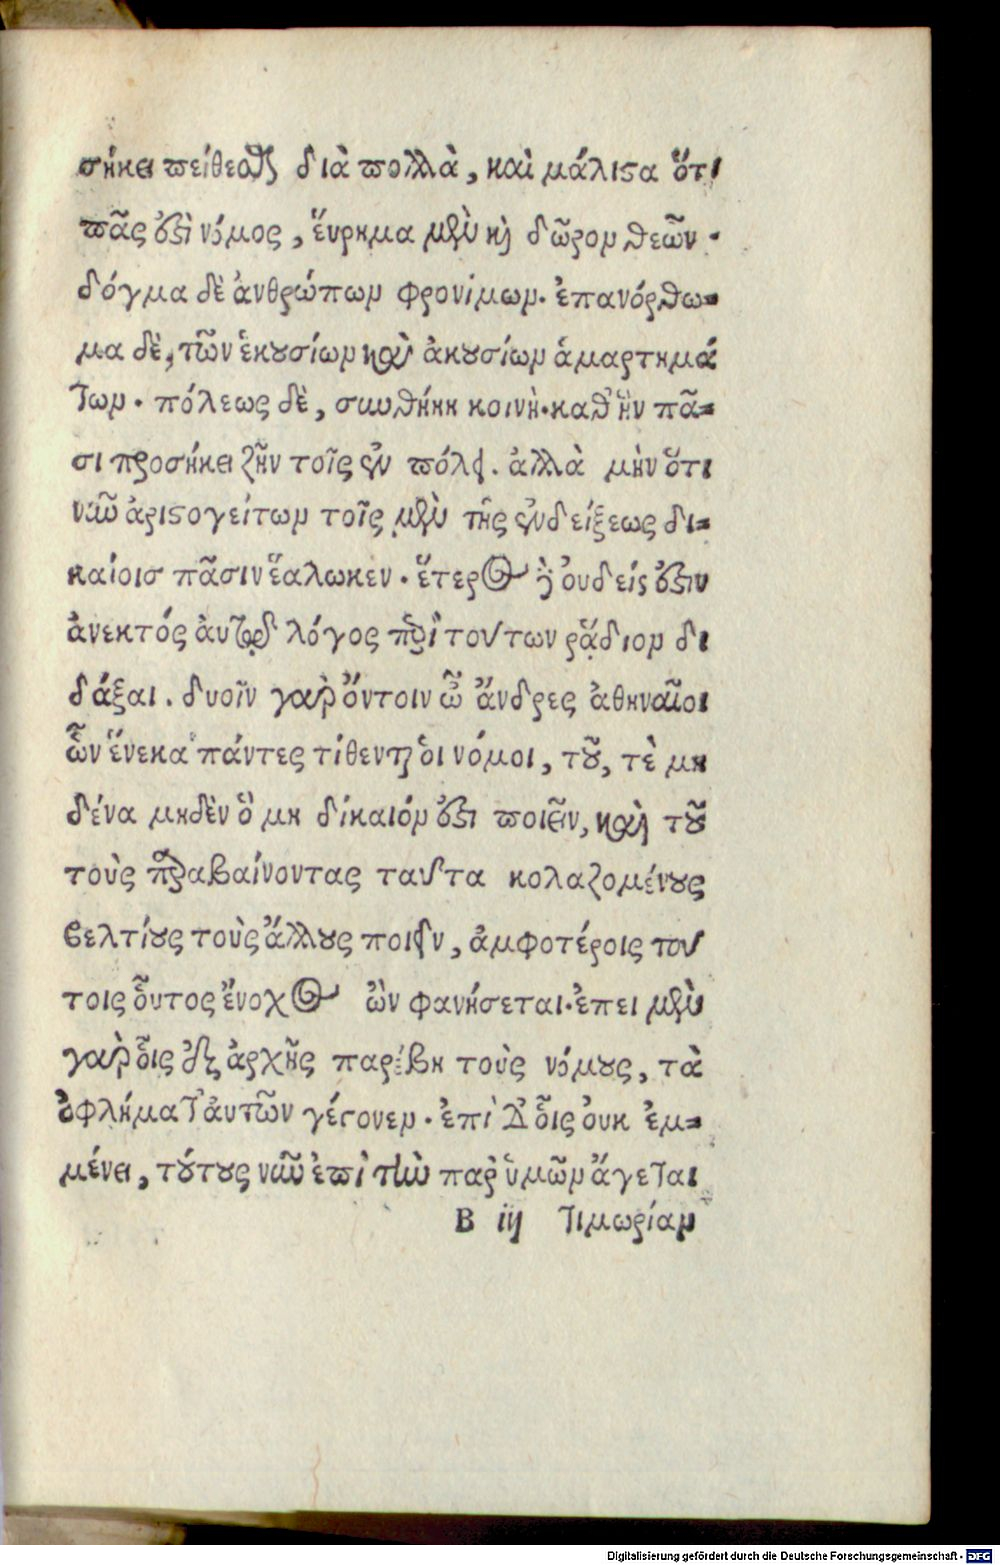 σήκει πείθεσθαι διὰ πολλὰ, καὶ μάλιστα ὅτι
πᾶς ἐστὶ νόμος, ἕυρημα μὲν καὶ δῶρον θεῶν.
δόγμα δὲ ἀνθρώπων φρονίμων. ἐπανόρθω-
μα δὲ, τῶν ἑκουσίων καὶ ἀκουσίων ἁμαρτημά
των. πόλεως δὲ, συνθήκη κοινὴ. καθ' ἣν πᾶ-
σι προσήκει ζῆν τοῖς ἐν πόλει. ἀλλὰ μὴν ὅτι
νῦν ἀριστογείτων τοῖς μὲν τῆς ἐνδείξεως δι-
καίοισ πᾶσιν ἑάλωκεν. ἕτερος δὲ ὀυδείς ἐστιν
ἀνεκτός ἀυτῷ λόγος περὶ τούτων ῥᾴδιον δι
δάξαι. δυοῖν γὰρ ὄντοιν ὦ ἄνδρες ἀθηναῖοι
ὧν ἕνεκα πάντες τίθενται ὁι νόμοι, τοῦ, τὲ μη
δένα μηδὲν ὃ μη δίκαιόν ἐστι ποιεῖν, καὶ τοῦ
τοὺς παραβαίνοντας ταῦτα κολαζομένους
βελτίους τοὺς ἄλλους ποιεῖν, ἀμφοτέροις τού
τοις ὗτος ἔνοχος ὢν φανήσεται. ἐπει μὲν
γὰρ οἷς ἐξ ἀρχῆς παρέβη τοὺς νόμους, τὰ
ὀφλήματ' ἀυτῶν γέγονεν. ἐπὶ δ' οἷς ὀυκ ἐμ-
μένει, τούτους νῦν ἐπὶ τὴν παρ' ὑμῶν ἄγεται
B iij τιμωρίαν
Digitalisierung gefördert durch die Deutsche Forschungsgemeinschaft - DFG